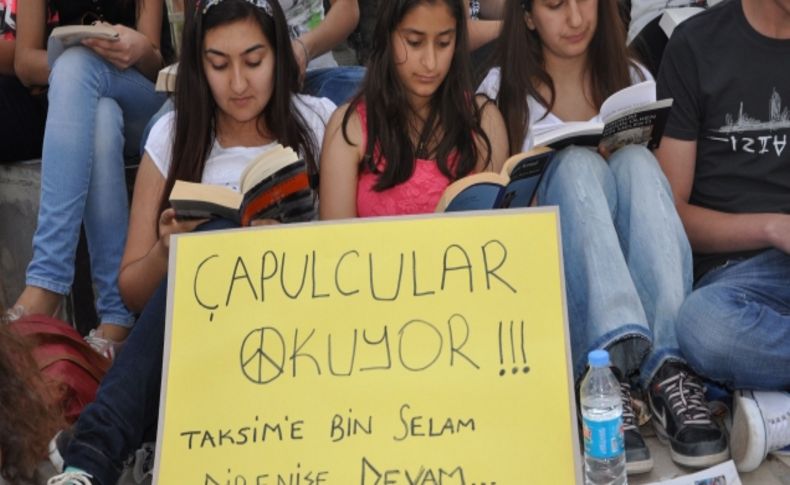 ÇAPULCULAR
OKUYOR !!!
TAKSİM'E BİN SELAM
DİRENİŞE DEVAM...